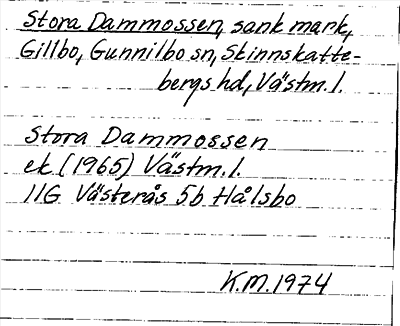 Stora Dammossen, sank mark,
Gillbo, Gunnilbo sn, Skinnskatte-
bergs hd, Västm. l.
Stora Dammossen
ek (1965) Västm. l.
11G Västerås 5b Hålsbo
K.M. 1974